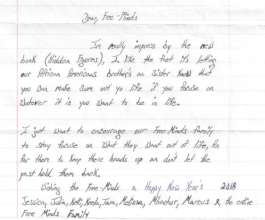 Dear Free Minds
I'm really impress by the new
book (Hidden Figures), I like the fact it's letting
our African Americans brothers an sister know that
you can make sure out yo life. If you focus on
whatever it is you want to be in life.
I just want to encourage our Free Minds family
to stay focus on what they want out of life, to
for them to keep there heads up an don't let the
past hold them back.
Wishing the Free Minds a Happy New Year's 2018
Jessica, Julia, Kelli, Keela, Tara, Melissa, Marcus & the entire
Free Minds Family